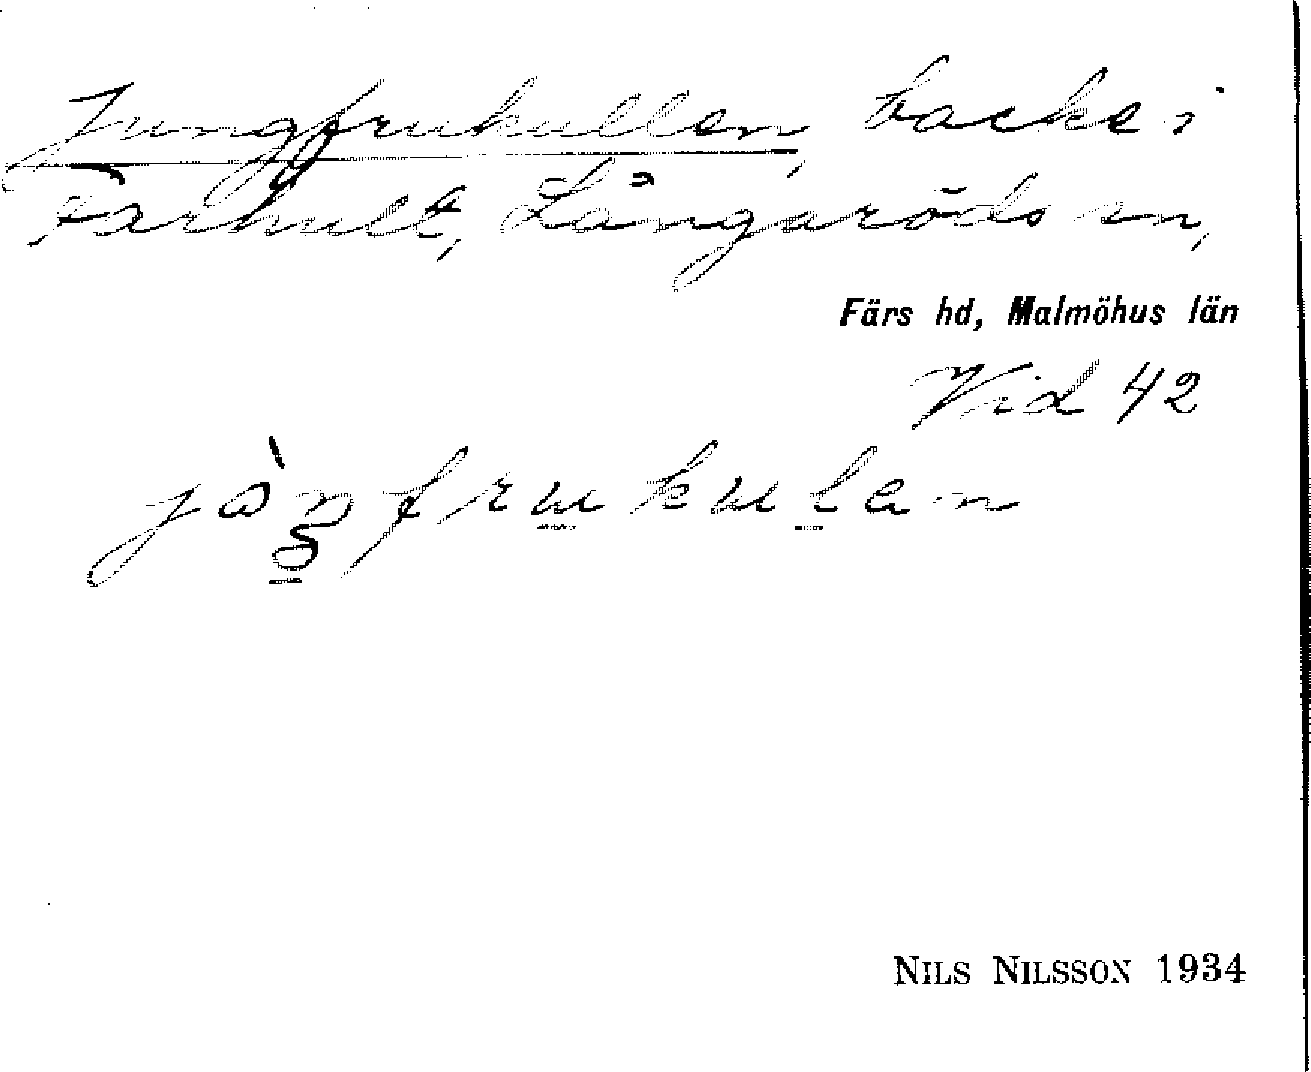 Jungfrukullen, backe i
Farhult, Långaröds sn,
Färs hd, Malmöhus län
Vid 42
NILS NILSSON 1934